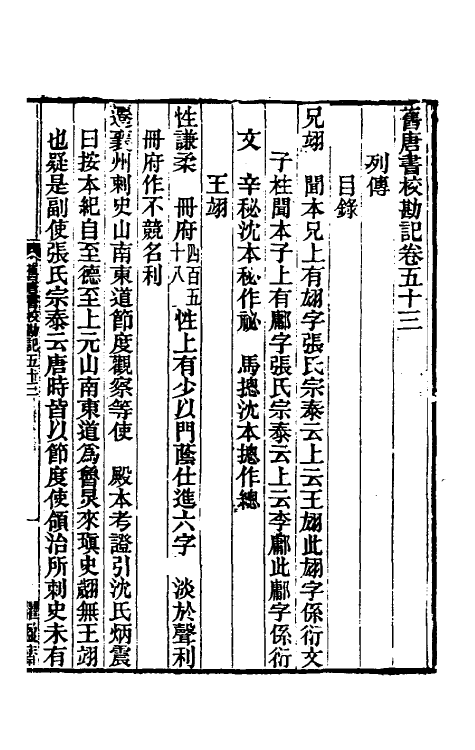 舊唐書校勘記卷五十三
列傳
目錄
兄翃　聞本兄上有翃字張氏宗泰云上云王翃此翃字係衍文
子柱聞本子上有鄘字張氏宗泰云上云李鄘此鄘字係衍
文　辛秘沈本秘作祕　馬摠沈本摠作總
王翊
性謙柔　冊府四百五十八性上有少以門蔭仕進六字　淡於聲利
冊府作不競名利
遷襄州刺史山南東道節度觀察等使　殿本考證引沈氏炳震
曰按本紀自至德至上元山南東道爲魯炅來瑱史翽無王翊
也疑是副使張氏宗泰云唐時皆以節度使領治所刺史未有
舊唐書校勘記五十三
一